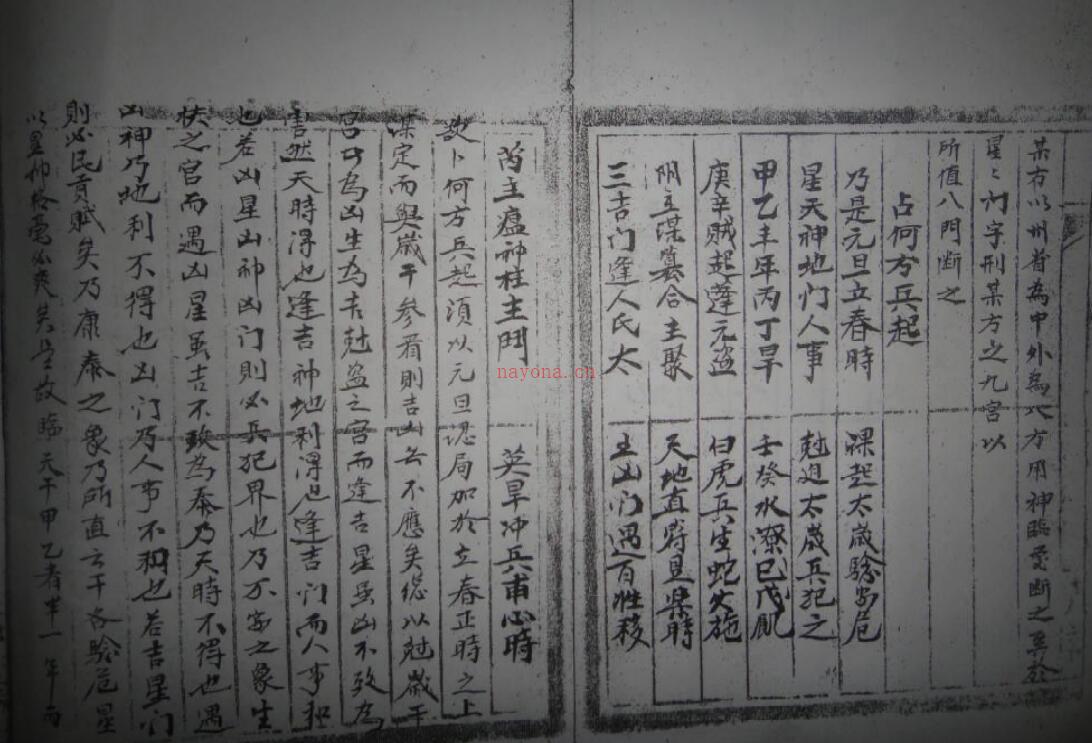 某右以州首為中外為八方用神臨爱断之至於
星之门字刑某方之九宫以
所值八門断之
占何方兵起
乃是元旦立春時 課起太歲驗安危
星天神地门人事 尅迫太歲兵犯之
甲乙丰年丙丁旱 壬癸水潦巳戊飢
庚辛賊起蓬元盗 白虎兵生蛇火施
陰主謀篡合主聚 天地直符且樂時
三吉门逢人民太 五凶门遇百姓移
芮主瘟神柱主鬥 英旱冲兵甫心時
欲卜何方兵起須以元旦認局加於立春正時之上
課定而與歲干參看則吉凶無不應矣總以尅歲干
宫者為凶生為吉尅盗之宫而逢吉星虽凶不致為
害然天時得也逢吉神地利得也逢吉门而人事和
也若凶星凶神凶门則必兵犯界也乃不安之象生
扶之宫而遇凶星虽吉不致為泰乃天時不得也遇
凶神乃地利不得也凶门乃人事不和也若吉星门
則必民貢賦矣乃康泰之象乃所直云干各驗危星
以星 毫必爽矣 故臨天干甲乙者丰一年而
nayona.cn